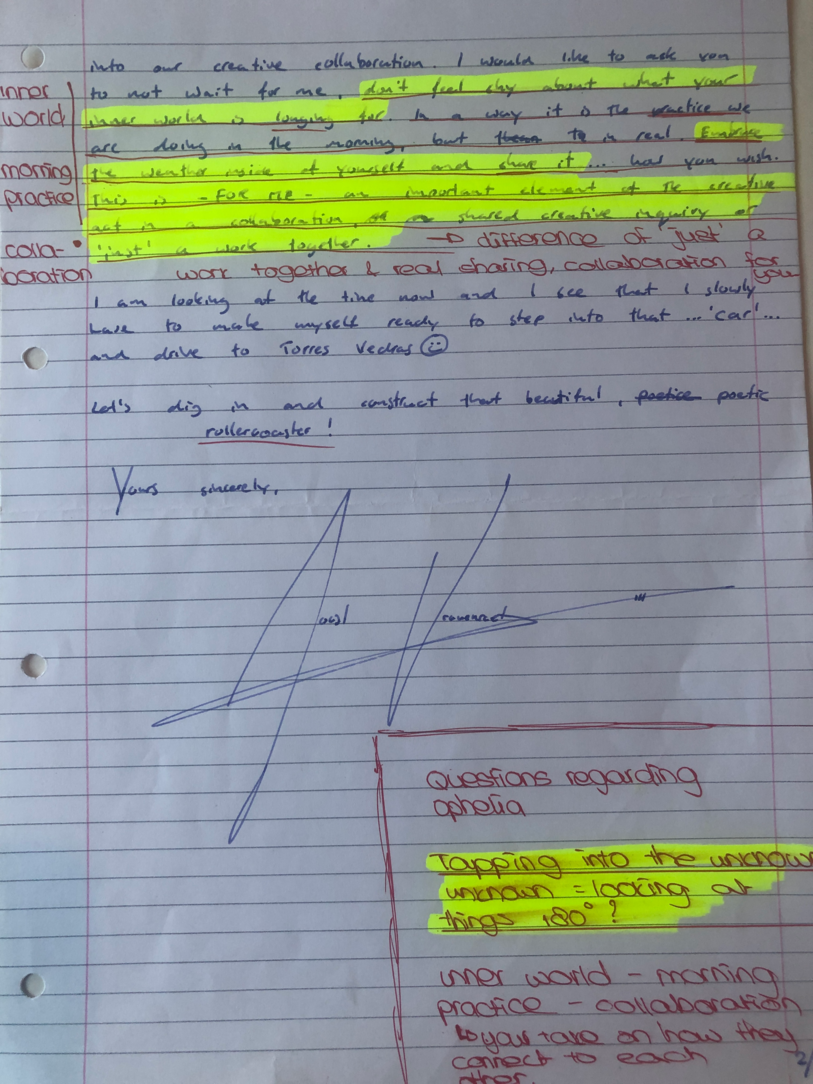 into our creative collaboration. I would like to ask you
inner
to not wait for me, don't feel shy about what your
world
inner world is longing for. In a way it is the practice we
are doing in the morning, but to in real. Embrace
morning
the weather inside of yourself and share it ... how you wish.
practice
This is - FOR ME - an important element of the creative
act in a collaboration, shared creative inquiry or
colla-
boration
'just' a work together. → difference of 'just' a
work together & real sharing, collaboration for you
I am looking at the time now and I see that I slowly
have to make myself ready to step into that ... 'car' ...
and drive to Torres Vedras ☺
Let's dig in and construct that beautiful, poetice poetic
rollercoaster!
Yours sincerely,
Questions regarding
ophelia
Tapping into the unknown
unknown = looking at
things 180°?
inner world - morning
practice - collaboration
↳ your take on how they
connect to each
other.
2/